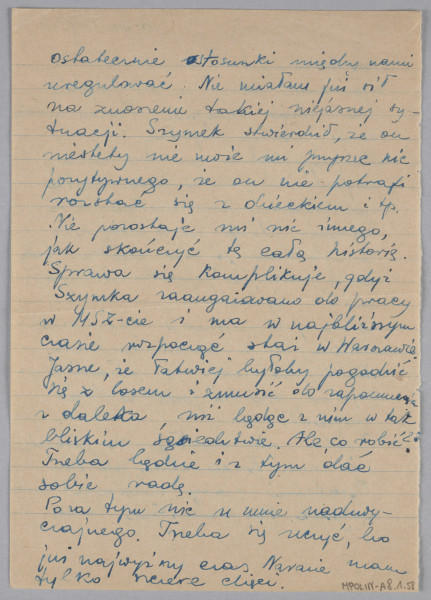 ostatecznie stosunki między nami
uregulować. Nie miałam już sił
na znoszenie takiej niejasnej sy-
tuacji. Szymek stwierdził, że on
niestety nie może mi przyrzec nic
pozytywnego, że on nie potrafi
rozstać się z dzieckiem i tp.
Nie pozostaje mi nic innego,
jak skończyć tę całą historię.
Sprawa się komplikuje, gdyż
Szymka zaangażowano do pracy
w MSZ-cie i ma w najbliższym
czasie rozpocząć staż w Warszawie.
Jasne, że łatwiej byłoby pogodzić
się z losem i zmusić do zapomnienia
z daleka, niż będąc z nim w tak
bliskim sąsiedztwie. Ale co robić?
Trzeba będzie i z tym dać
sobie radę.
Poza tym nic u mnie nadzwy-
czajnego. Trzeba się uczyć, bo
już najwyższy czas. Narazie mam
tylko szczere chęci.
MPOLIN-A8.1.58